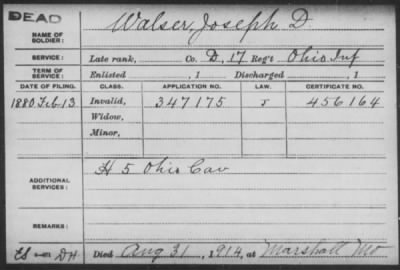 DEAD
NAME OF SOLDIER: Walser, Joseph D.
SERVICE: Late rank, Co. D, 17 Reg't Ohio Inf
TERM OF SERVICE: Enlisted , 1 Discharged , 1
DATE OF FILING. CLASS. APPLICATION NO. LAW. CERTIFICATE NO.
1880 Feb. 13 Invalid, 347175 456164
Widow,
Minor,
ADDITIONAL SERVICES: H 5 Ohio Cav
REMARKS:
Died Aug 31, 1914, at Marshall Mo